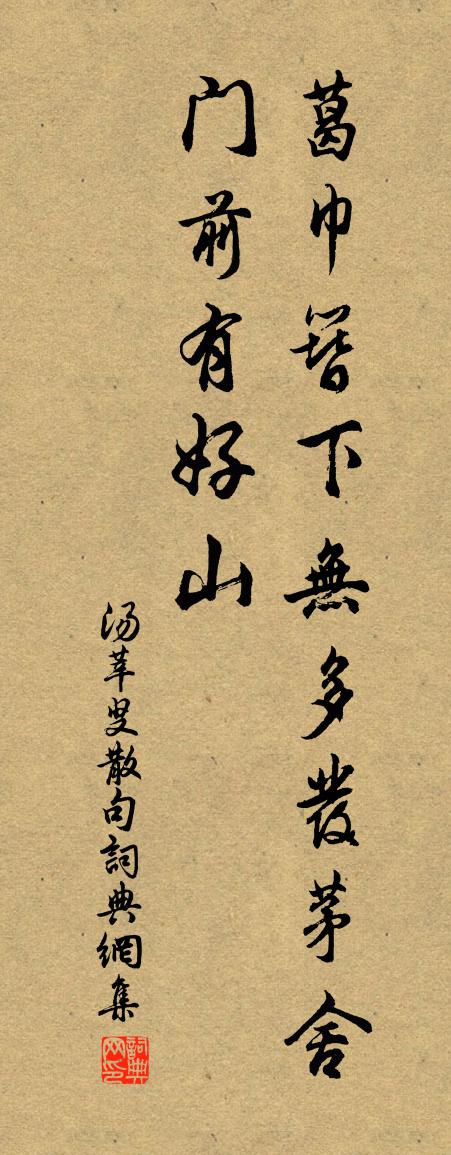 葛巾簪下無多發茅舍
门前有好山
汤莘叟散句詞典網集
詞典网印